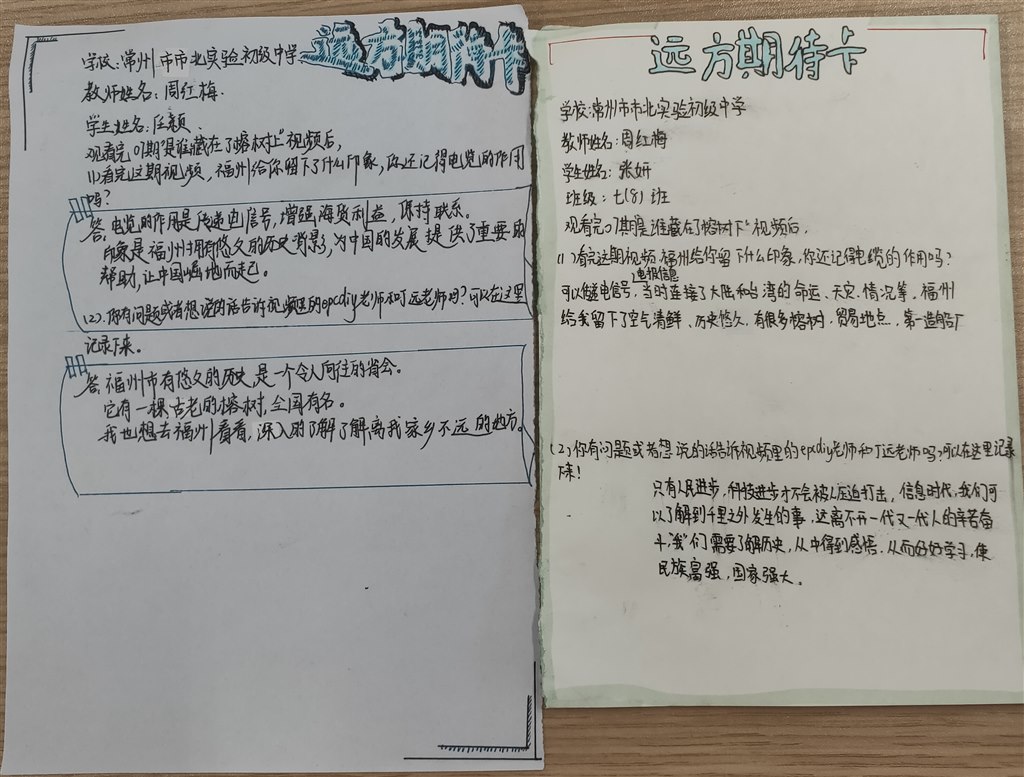 远方期待卡
学校:常州市市北实验初级中学
教师姓名:周红梅.
学生姓名:任颖.
观看完01期"是谁藏在了榕树上"视频后,
(1)看完这期视频,福州给你留下了什么印象,你还记得电缆的作用
吗?
答:电缆的作用是传递电信号,增强海货利益,保持联系。
印象是福州拥有悠久的历史背影,为中国的发展提供了重要的
帮助,让中国崛地而起。
(2).你有问题或者想说的话告诉视频里的epcdiy老师和丁远老师吗?可以在这里
记录下来。
答:福州市有悠久的历史,是一个令人向往的省会。
它有一棵古老的榕树,全国有名。
我也想去福州看看,深入的了解了解,离我家乡不远的地方。
远方期待卡
学校:常州市市北实验初级中学
教师姓名:周红梅
学生姓名:张妍
班级:七(8)班
观看完01期是谁藏在了榕树下"视频后,
(1)看完这期视频,福州给你留下什么印象,你还记得电缆的作用吗?
电报信息
可以继电信号,当时连接了大陆和台湾的命运、天灾、情况等,福州
给我留下了空气清鲜、历史悠久,有很多榕树,贸易地点,第一造船厂
(2)你有问题或者想说的话告诉视频里的epcdiy老师和丁远老师吗,可以在这里记录
下来!
只有人民进步,科技进步才不会被人压迫打击,信息时代,我们可
以了解到千里之外发生的事,这离不开一代又一代人的辛苦奋
斗,我们需要了解历史,从中得到感悟,从而好好学习,使
民族富强,国家强大。